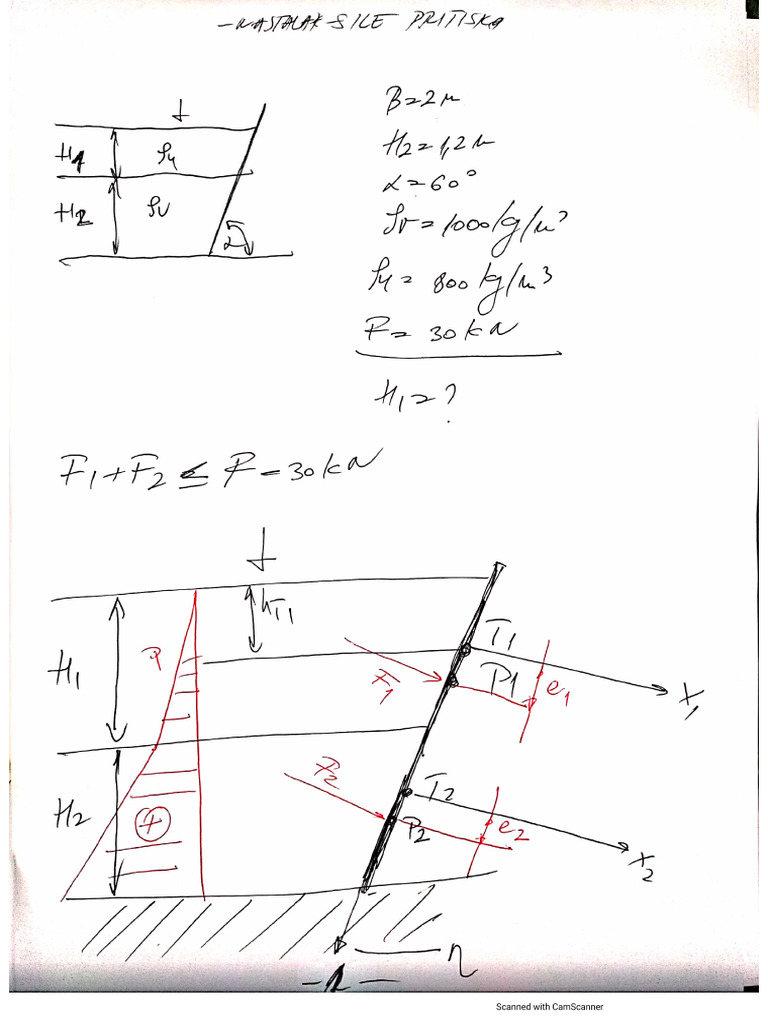 - NASTAVAK SILE PRITISKA
B=2m
H1
ρu
H2=1,2m
α=60°
H2
ρv
ρv=1000kg/m³
α
ρu=800kg/m³
F=30kN
H1=?
F1+F2≤F=30kN
hT1
T1
H1
P
F1
P1
e1
X1
F2
T2
H2
+
P2
e2
X2
η
Scanned with CamScanner